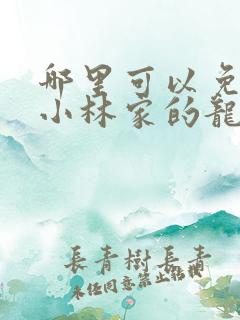 哪里可以免
小林家的龍
長青樹長青
未任同意禁止転載